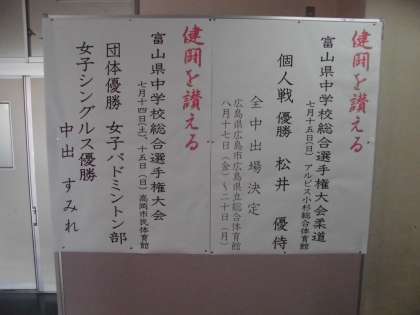 健闘を讃える
富山県中学校総合選手権大会柔道
七月十五日(日)アルビス小杉総合体育館
個人戦 優勝 松井 優待
全中出場決定
広島県広島市広島県立総合体育館
八月十七日(金)~二十日(月)
健闘を讃える
富山県中学校総合選手権大会
七月十四日(土)、十五日(日)高岡市民体育館
団体優勝 女子バドミントン部
女子シングルス優勝
中出 すみれ